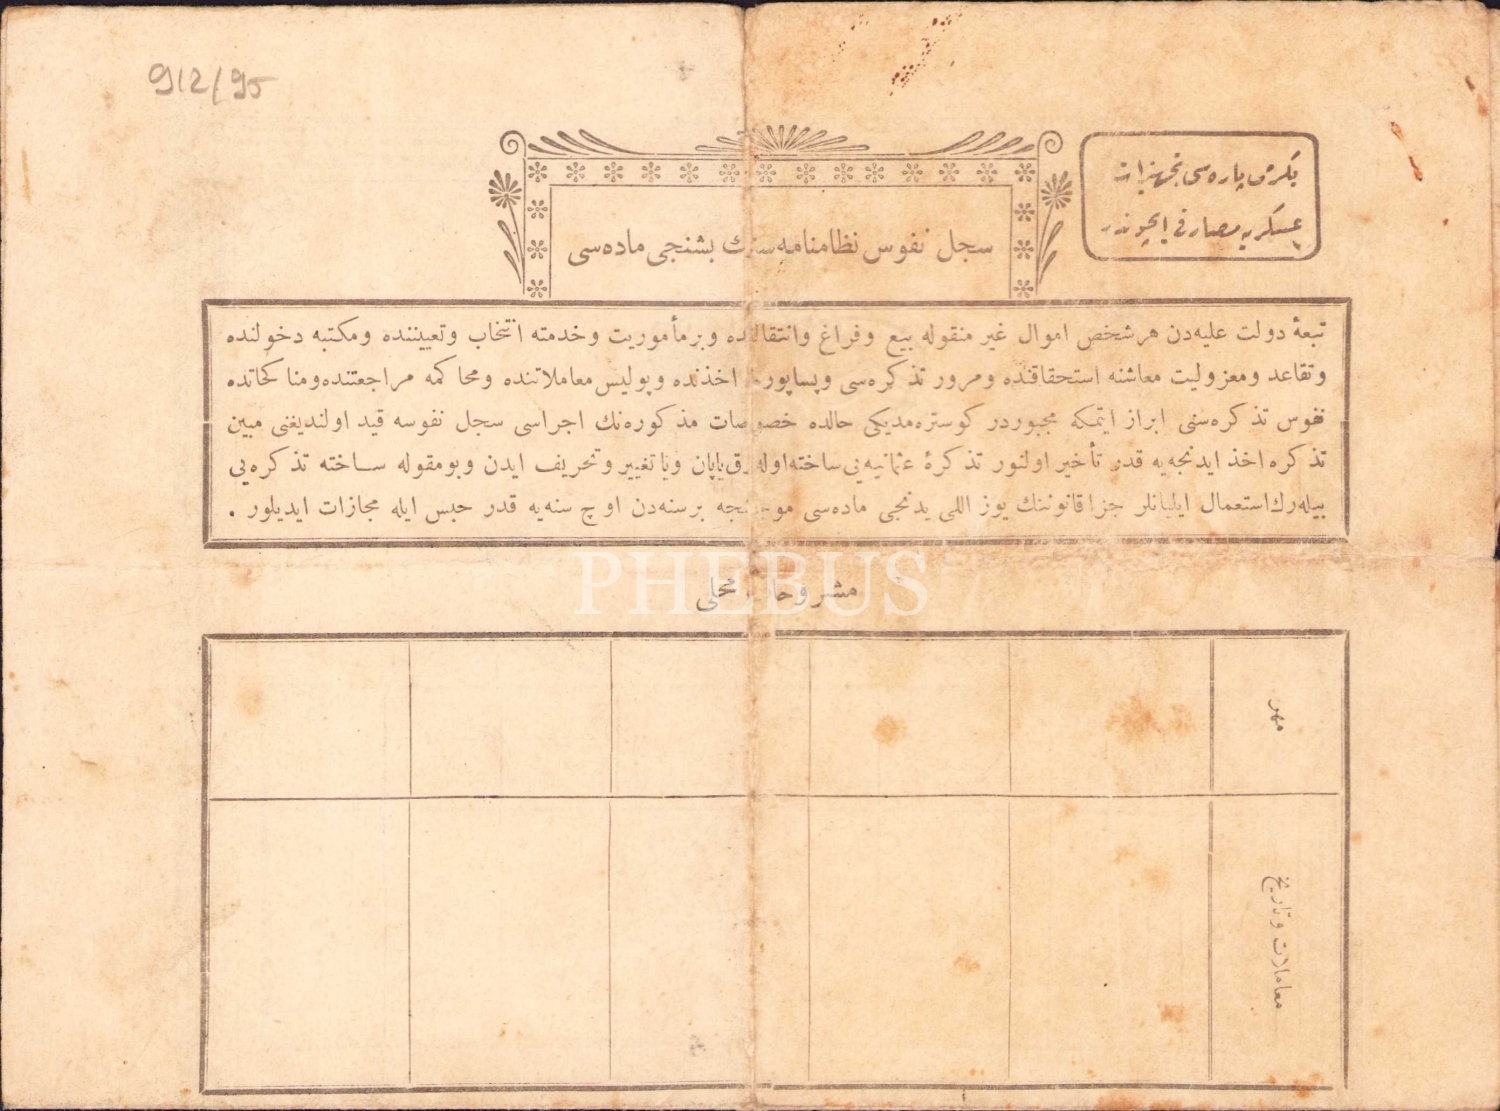 912/95
يكرمى پاره سى تجهيزات
عسكريه مصارفى ايچوندر
سجل نفوس نظامنامه سنك بشنجى ماده سى
تبعهٔ دولت عليه دن هر شخص اموال غير منقوله بيع و فراغ وانتقالنده و بر مأموريت وخدمته انتخاب وتعييننده ومكتبه دخولنده
وتقاعد ومعزوليت معاشنه استحقاقنده ومرور تذكره سى وپساپورط اخذنده وپوليس معاملاتنده ومحاكمه مراجعتنده ومناكحاتده
نفوس تذكره سنى ابراز ايتمكه مجبوردر كوستره مديكى حالده خصوصات مذكوره نك اجراسى سجل نفوسه قيد اولنديغنى مبين
تذكره اخذ ايدنجه يه قدر تأخير اولنور تذكرهٔ عثمانيه يى ساخته اوله رق ياپان ويا تغيير وتحريف ايدن وبومقوله ساخته تذكره يى
بيله رك استعمال ايليانلر جزا قانوننك يوز اللى يدنجى ماده سى موجبنجه بر سنه دن اوچ سنه يه قدر حبس ايله مجازات ايديلور .
مشروحات محلى
PHEBUS
مهر
معاملات و تاريخ